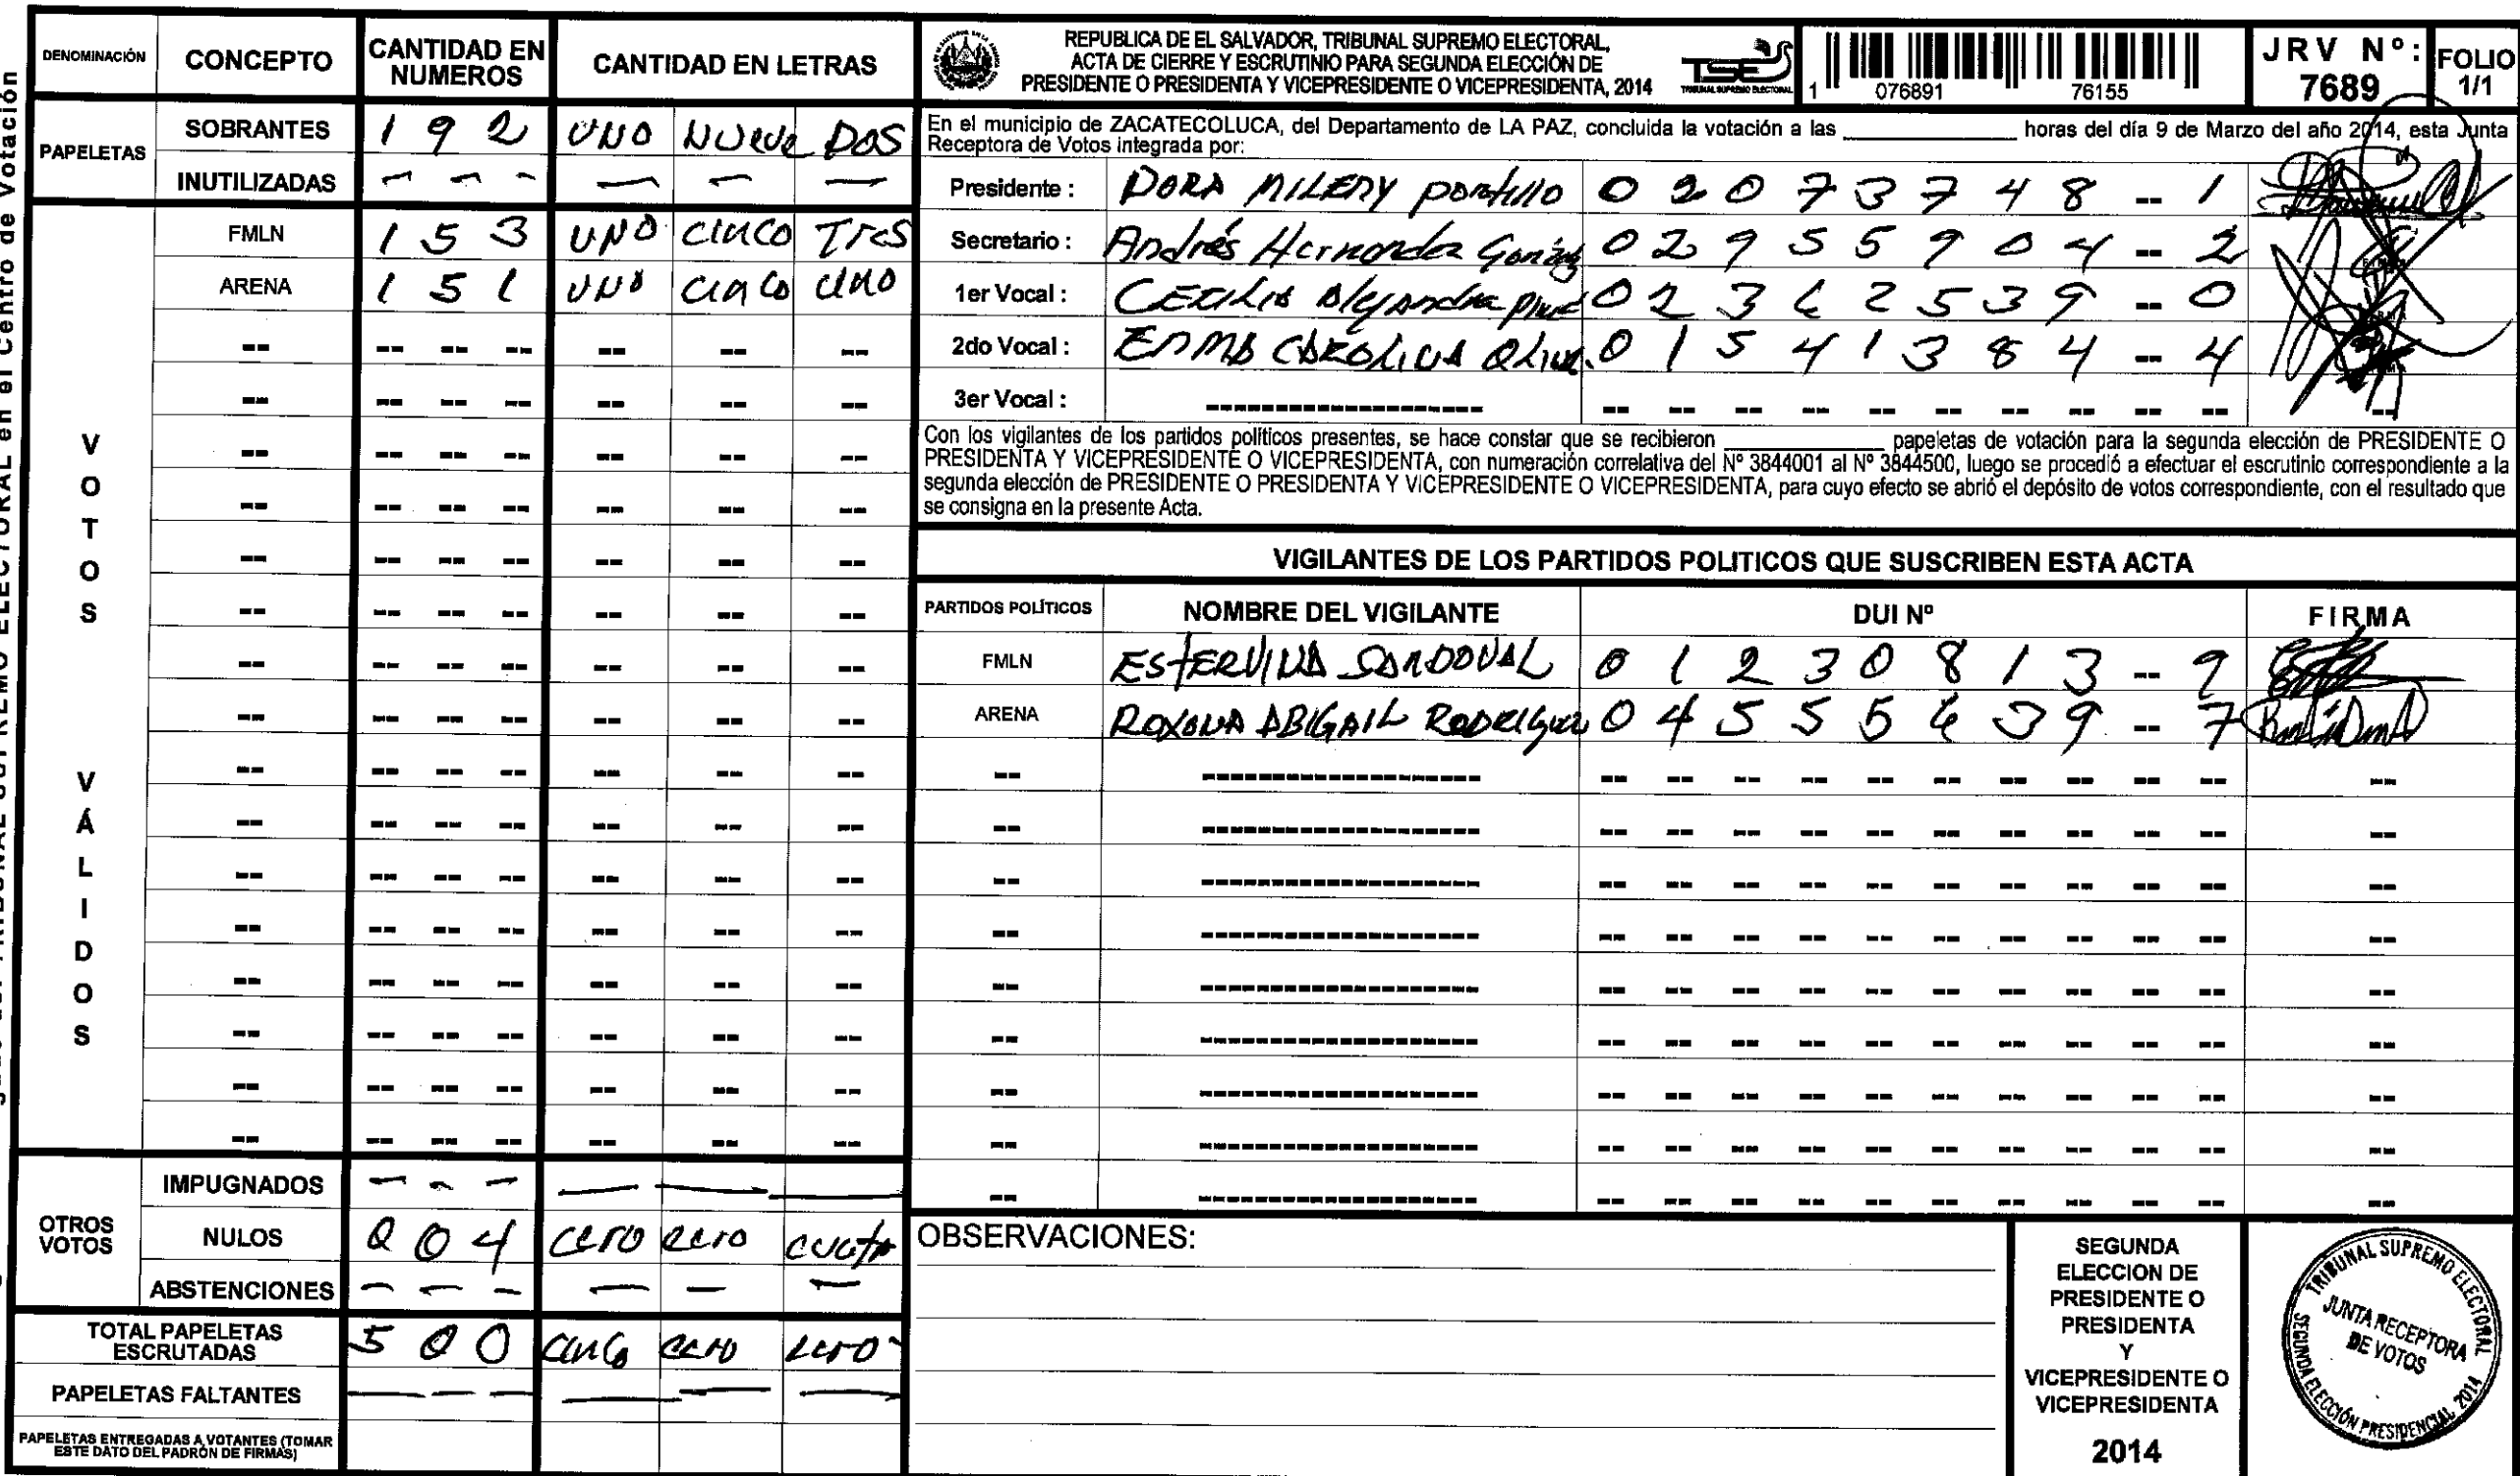 DENOMINACIÓN CONCEPTO CANTIDAD EN NUMEROS CANTIDAD EN LETRAS
PAPELETAS
SOBRANTES 1 9 2 UNO NUEVE DOS
INUTILIZADAS - - - - - -
VOTOS VÁLIDOS
FMLN 1 5 3 UNO CINCO TRES
ARENA 1 5 1 UNO CINCO UNO
OTROS VOTOS
IMPUGNADOS - - - - - -
NULOS 0 0 4 cero cero cuatro
ABSTENCIONES - - - - - -
TOTAL PAPELETAS ESCRUTADAS 5 0 0 cinco cero cero
PAPELETAS FALTANTES - - - - - -
PAPELETAS ENTREGADAS A VOTANTES (TOMAR ESTE DATO DEL PADRÓN DE FIRMAS)
REPUBLICA DE EL SALVADOR, TRIBUNAL SUPREMO ELECTORAL,
ACTA DE CIERRE Y ESCRUTINIO PARA SEGUNDA ELECCIÓN DE
PRESIDENTE O PRESIDENTA Y VICEPRESIDENTE O VICEPRESIDENTA, 2014
TSE
TRIBUNAL SUPREMO ELECTORAL
1 076891 76155
JRV Nº: 7689
FOLIO 1/1
En el municipio de ZACATECOLUCA, del Departamento de LA PAZ, concluida la votación a las ____________ horas del día 9 de Marzo del año 2014, esta Junta
Receptora de Votos integrada por:
Presidente : DORA MILEDY Portillo 0 2 0 7 3 7 4 8 -- 1
Secretario : Andrés Hernandez 0 2 9 5 5 9 0 4 -- 2
1er Vocal : CECILIA Alejandra 0 2 3 6 2 5 3 9 -- 0
2do Vocal : ENMA CAROLINA 0 1 5 4 1 3 8 4 -- 4
3er Vocal : --------------------
Con los vigilantes de los partidos políticos presentes, se hace constar que se recibieron ____________ papeletas de votación para la segunda elección de PRESIDENTE O
PRESIDENTA Y VICEPRESIDENTE O VICEPRESIDENTA, con numeración correlativa del Nº 3844001 al Nº 3844500, luego se procedió a efectuar el escrutinio correspondiente a la
segunda elección de PRESIDENTE O PRESIDENTA Y VICEPRESIDENTE O VICEPRESIDENTA, para cuyo efecto se abrió el depósito de votos correspondiente, con el resultado que
se consigna en la presente Acta.
VIGILANTES DE LOS PARTIDOS POLITICOS QUE SUSCRIBEN ESTA ACTA
PARTIDOS POLÍTICOS NOMBRE DEL VIGILANTE DUI Nº FIRMA
FMLN ESTERVINA SANDOVAL 0 1 2 3 0 8 1 3 -- 9
ARENA ROXANA ABIGAIL RODRIGUEZ 0 4 5 5 5 6 3 9 -- 7
OBSERVACIONES:
SEGUNDA
ELECCION DE
PRESIDENTE O
PRESIDENTA
Y
VICEPRESIDENTE O
VICEPRESIDENTA
2014
TRIBUNAL SUPREMO ELECTORAL
JUNTA RECEPTORA
DE VOTOS
SEGUNDA ELECCIÓN PRESIDENCIAL 2014